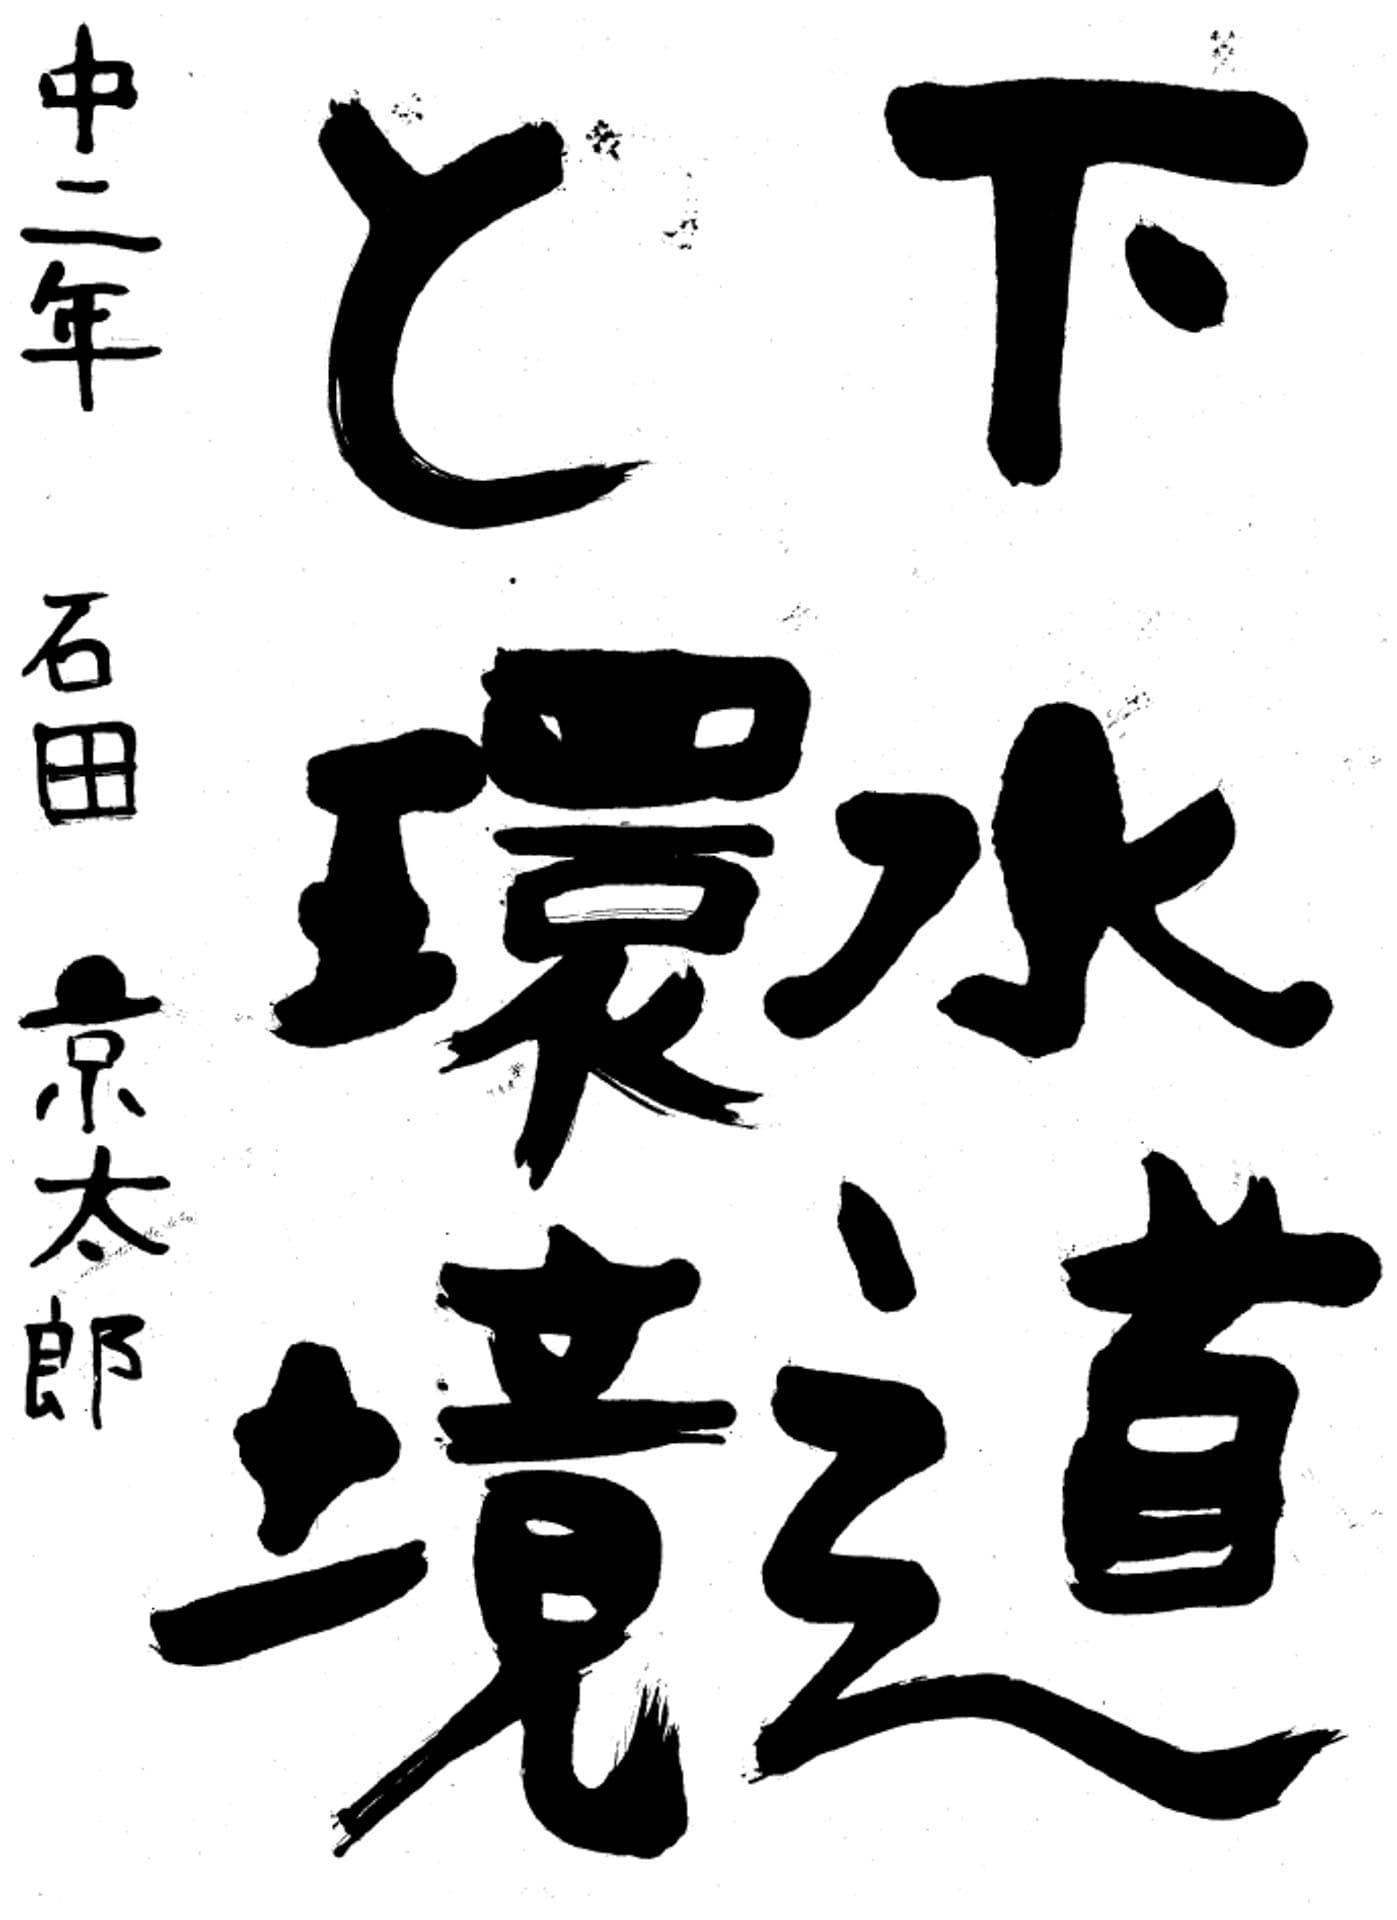 下水道
と環境
中二年 石田 京太郎